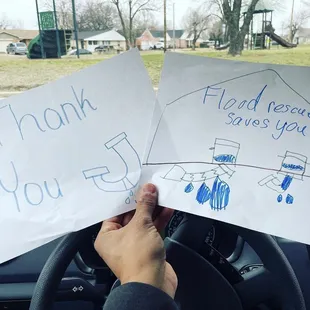 Thank
You
Flood rescue
saves you